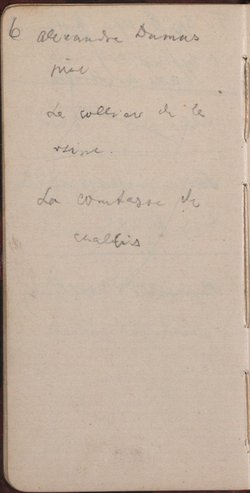 6 Alexandre Dumas
père
Le collier de la
reine.
La comtesse de
Chalis